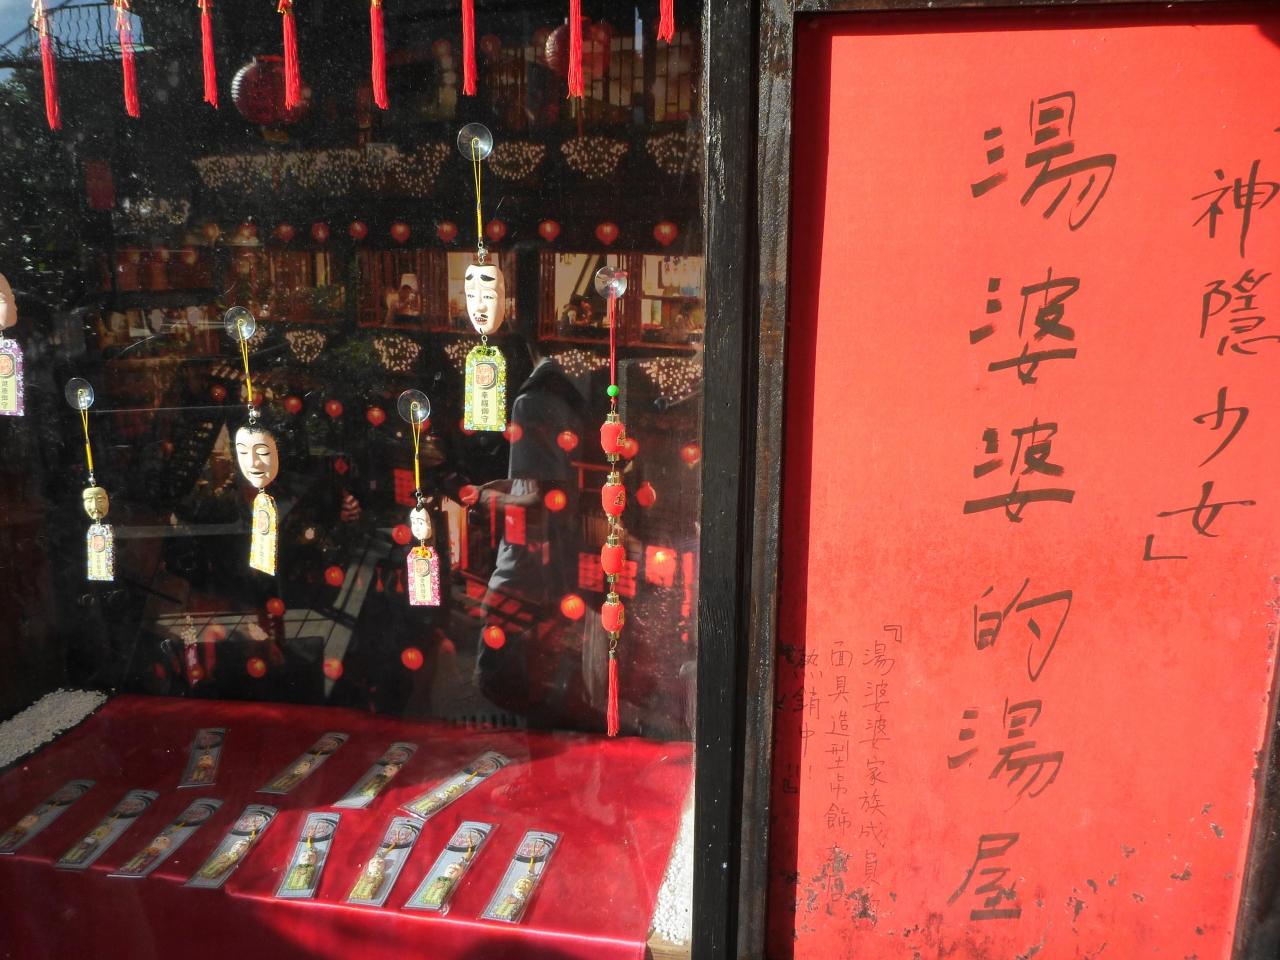 神隱少女」
湯婆婆的湯屋
『湯婆婆家族成員
面具造型吊飾
熱銷中!!
幸福御守